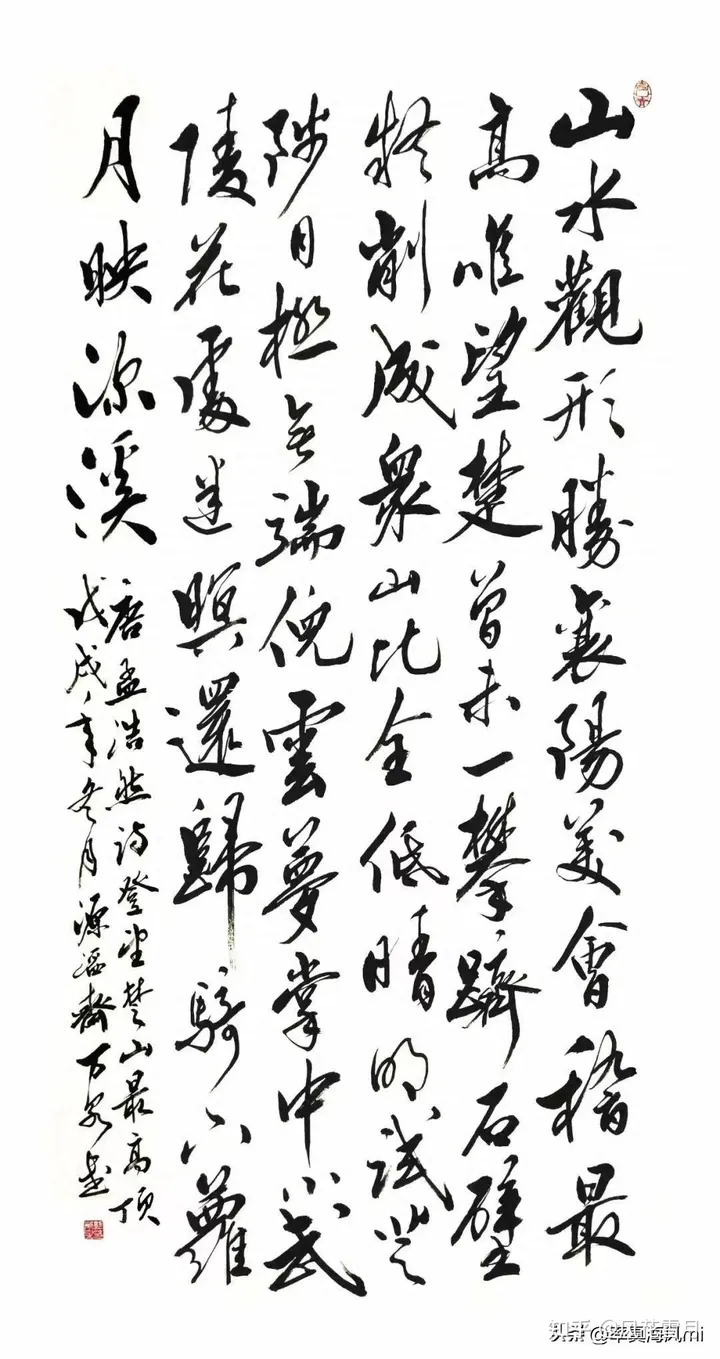 山水觀形勝襄陽美會稽最
高唯望楚曾未一攀躋石壁
疑削成衆山比全低晴明試登
陟目極無端倪雲夢掌中小武
陵花處迷暝還歸騎下蘿
月映深溪
唐孟浩然詩登望楚山最高頂
戊戌年冬月源齋万泉書
头条 @率真海风mi